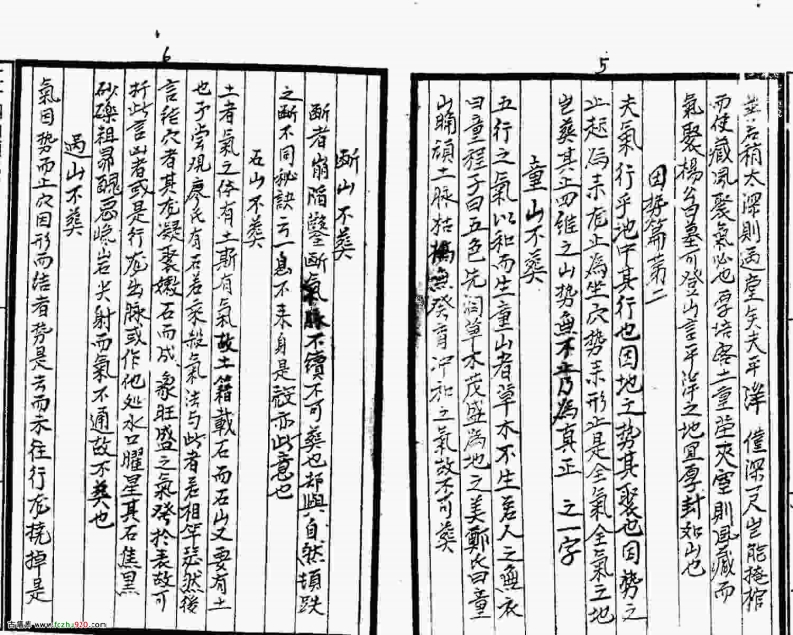 5
葬若稍太深則過堂矣夫平洋僅深一尺豈能掩棺
而使藏風聚氣必也厚培客土童塋夾室則風藏而
氣聚楊公墓可登山言平洋之地宜厚封如山也
因勢篇第二
夫氣行乎地中其行也因地之勢其聚也因勢之
止起為來龍止為坐穴勢來形止是全氣全氣之地
豈葬其正四維之山勢無不正乃為真正之一字
童山不葬
五行之氣以和而生童山者草木不生若人之無衣
曰童程子曰五色先潤草木茂盛為地之美鄭氏曰童
山 頑土脉枯槁無發育冲和之氣故不可葬
6
斷山不葬
斷者崩陷鑿斷氣脉不續不可葬也却與自然頓跌
之斷不同秘訣云一息不來身是殼亦此意也
石山不葬
土者氣之体有土斯有氣故土籍載石而石山又要有土
也予嘗現廖氏有石若來殺氣法与此者若相竿 然後
言徃穴者其龙凝聚嫩石而成象旺盛之氣發於表故可
折此言山者或是行龙出脉或作他处水口曜星其石焦黑
砂礫粗昂醜惡巉岩尖射而氣不通故不葬也
過山不葬
氣因势而止穴因形而结者势是去而不住行龙撓掉是
古籍 www.fczhu920.com